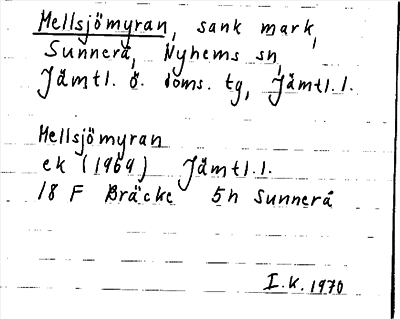 Mellsjömyran, sank mark,
Sunnerå, Nyhems sn,
Jämtl. ö. doms. tg, Jämtl. l.
Mellsjömyran
ek (1969) Jämtl. l.
18 F Bräcke 5h Sunnerå
I.K. 1970